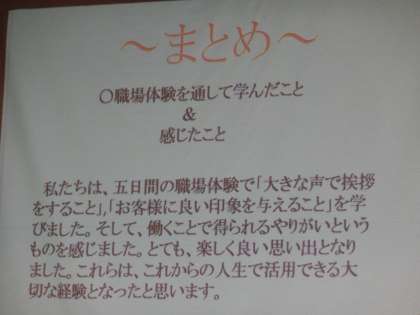 ～まとめ～
○職場体験を通して学んだこと
&
感じたこと
私たちは、五日間の職場体験で「大きな声で挨拶
をすること」,「お客様に良い印象を与えること」を学
びました。そして、働くことで得られるやりがいという
ものを感じました。とても、楽しく良い思い出となり
ました。これらは、これからの人生で活用できる大
切な経験となったと思います。